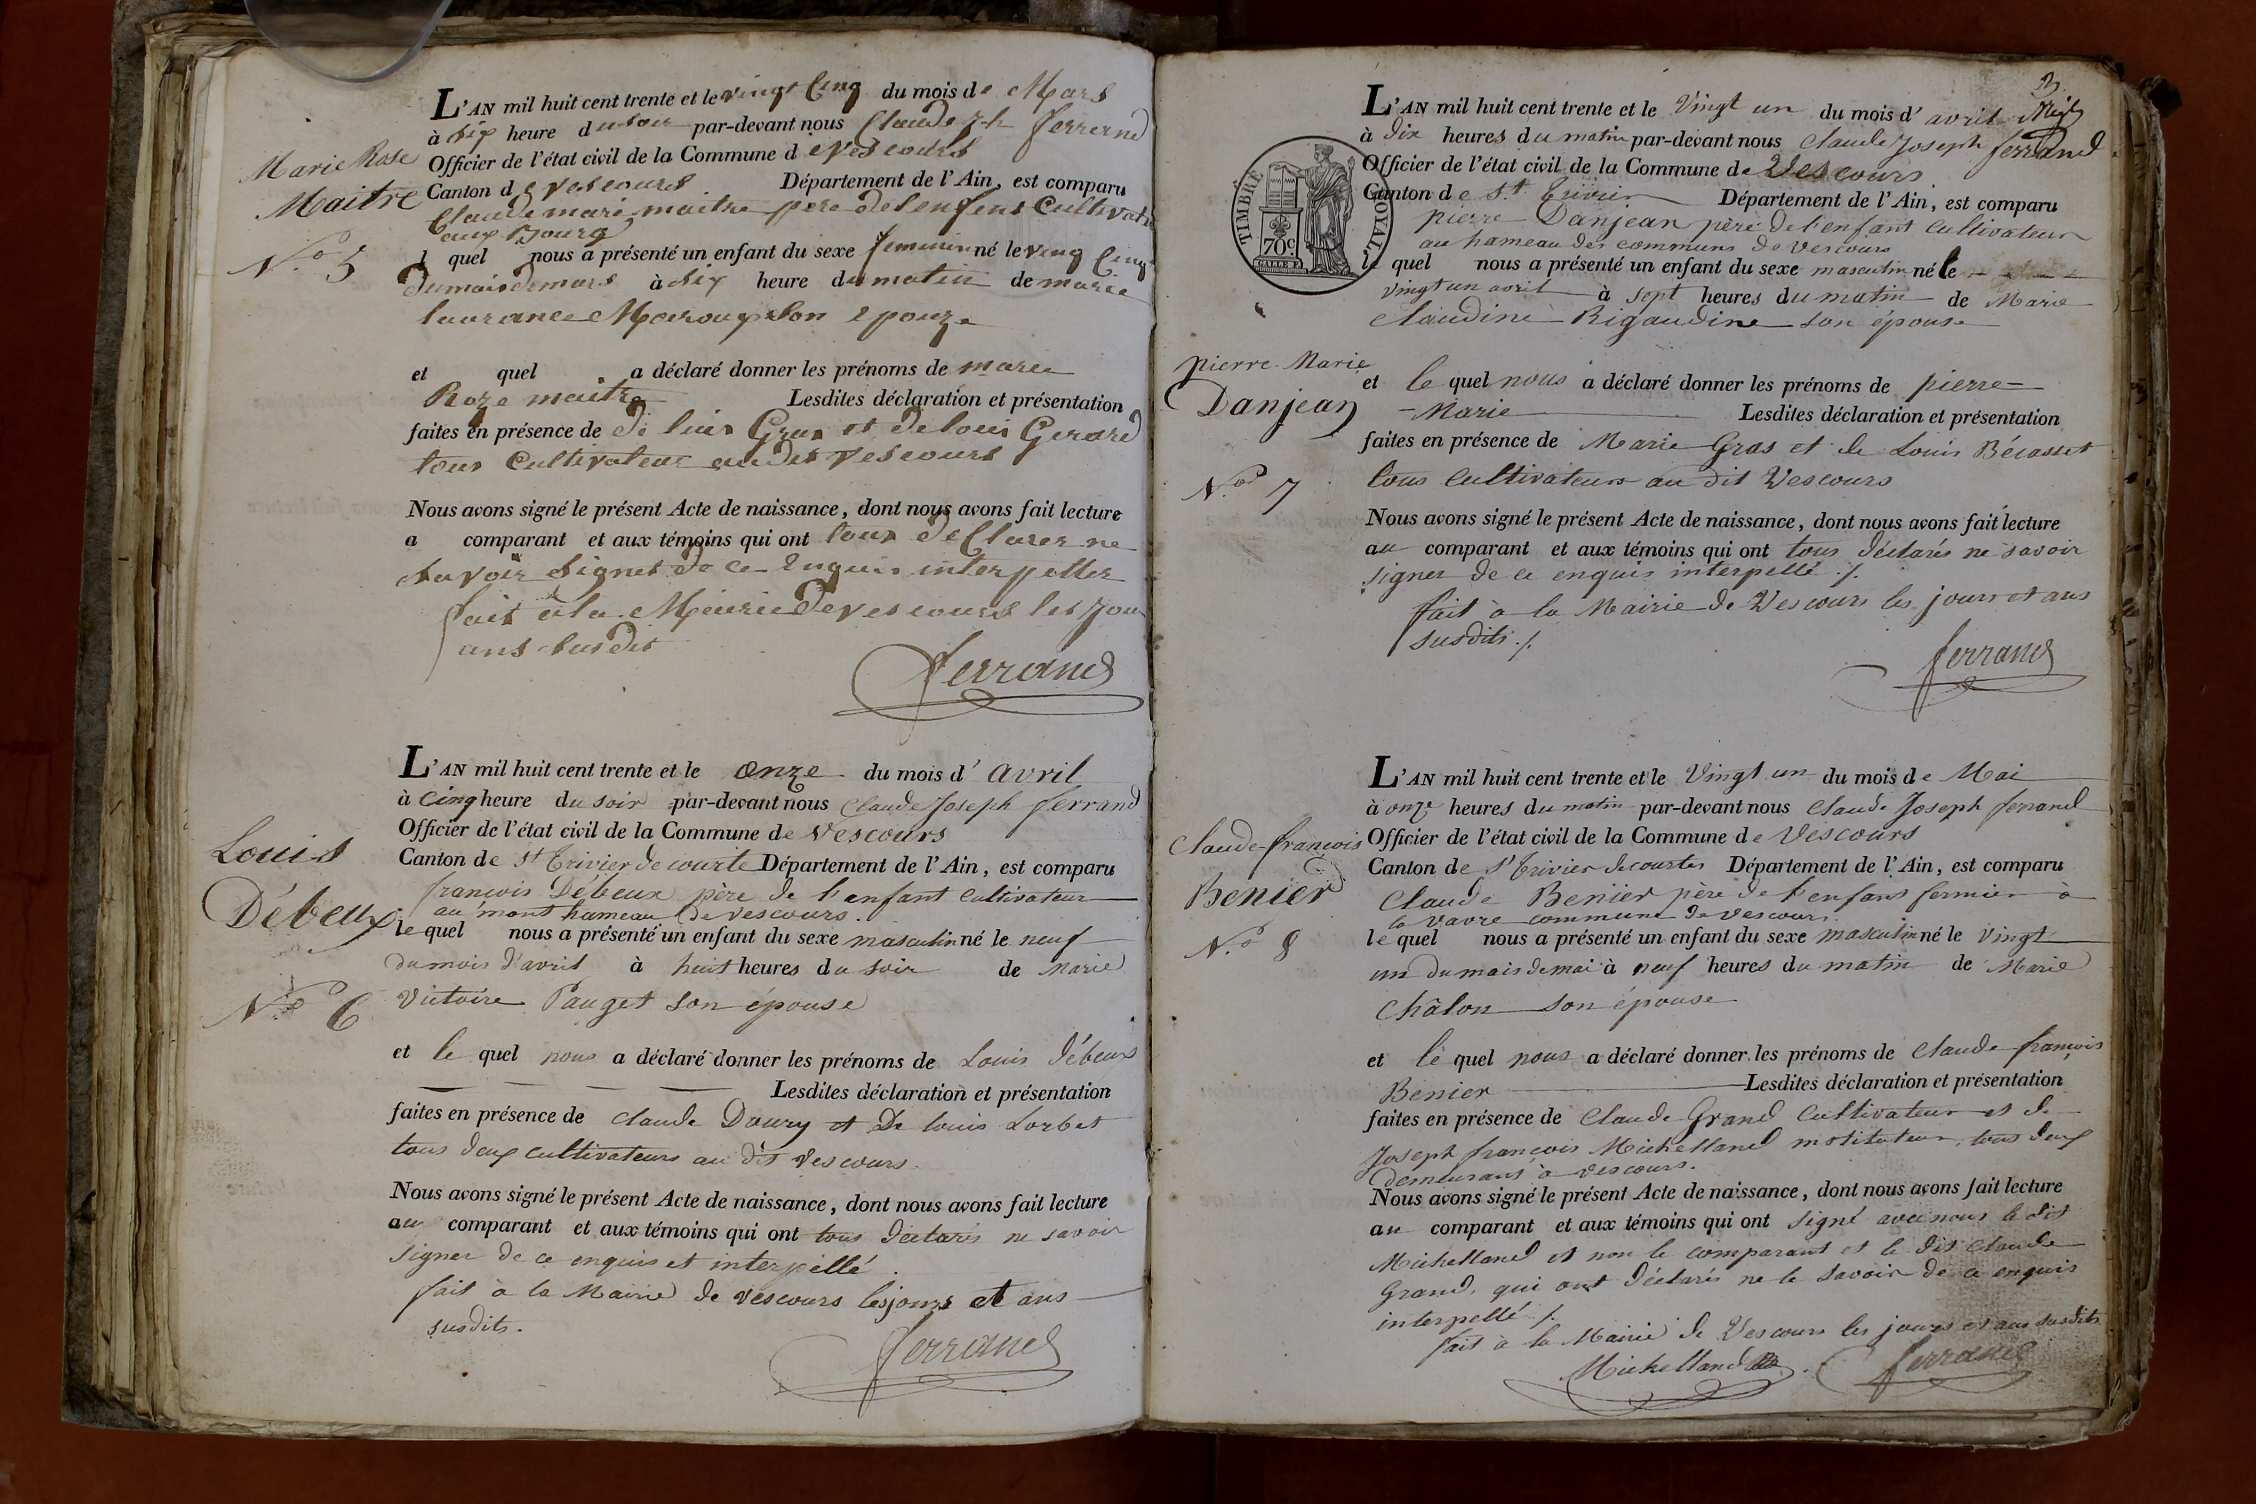 L'AN mil huit cent trente et le vingt Cinq du mois de Mars
à six heure du soir par-devant nous Claude Jh ferrand
Officier de l'état civil de la Commune de Vescours
Canton de vescours Département de l'Ain, est comparu
Claude marie maitre père de lenfent Cultivat
aux Bourg
l quel nous a présenté un enfant du sexe feminin né le ving Cinq
du mois de mars à six heure du matin de marie
laurance son epouze
et quel a déclaré donner les prénoms de marie
Roze maitre Lesdites déclaration et présentation
faites en présence de de Gras et de louis Gerard
tous Cultivateur audit Vescours
Nous avons signé le présent Acte de naissance, dont nous avons fait lecture
a comparant et aux témoins qui ont tous de Clarer ne
Savoir Signer de ce Enquis interpeller
fait à la Mairie de vescours les Jou
ans Susdit
ferrand
Marie Rose
Maitre
N.o 5
L'AN mil huit cent trente et le onze du mois d'avril
à Cinq heure du soir par-devant nous Claude Joseph ferrand
Officier de l'état civil de la Commune de Vescours
Canton de St Trivier de courte Département de l'Ain, est comparu
françois Débeux père de l'enfant cultivateur
au mont hameau de vescours.
le quel nous a présenté un enfant du sexe masculin né le neuf
du mois d'avril à huit heures du soir de Marie
Victoire Pauget son épouse
et le quel nous a déclaré donner les prénoms de Louis débeux
Lesdites déclaration et présentation
faites en présence de Claude Doury et De louis Lorbet
tous deux cultivateurs au dit Vescours.
Nous avons signé le présent Acte de naissance, dont nous avons fait lecture
au comparant et aux témoins qui ont tous déclarés ne savoir
signer de ce enquis et interpellé.
fait à la Mairie de vescours les jours et ans
susdits.
ferrand
Louis
Débeux
N.o 6
2
L'AN mil huit cent trente et le Vingt un du mois d'avril
à dix heures du matin par-devant nous Claude Joseph ferrand
Officier de l'état civil de la Commune de Vescours
Canton de St. Trivier Département de l'Ain, est comparu
pierre Danjean père de l'enfant cultivateur
au hameau des communs de Vescours
le quel nous a présenté un enfant du sexe masculin né le
vingt un avril à sept heures du matin de Marie
Claudine Rigaudine son épouse
et le quel nous a déclaré donner les prénoms de pierre=
-Marie Lesdites déclaration et présentation
faites en présence de Marie Gras et de Louis Bécasset
tous cultivateurs au dit Vescours
Nous avons signé le présent Acte de naissance, dont nous avons fait lecture
au comparant et aux témoins qui ont tous déclarés ne savoir
signer de ce enquis interpellé ./.
fait à la Mairie de Vescours les jours et ans
susdits ./.
ferrand
TIMBRE ROYAL
70c
pierre-Marie
Danjean
N.o 7
L'AN mil huit cent trente et le Vingt un du mois de Mai
à onze heures du matin par-devant nous Claude Joseph ferrand
Officier de l'état civil de la Commune de Vescours
Canton de St Trivier de courtes Département de l'Ain, est comparu
Claude Benier père de l'enfant fermier à
la vavre commune de vescours.
le quel nous a présenté un enfant du sexe masculin né le Vingt
un du mois de mai à neuf heures du matin de Marie
Châlon son épouse
et le quel nous a déclaré donner les prénoms de Claude-françois
Benier Lesdites déclaration et présentation
faites en présence de Claude Grand Cultivateur et de
Joseph françois Michelland instituteur, tous deux
demeurans à vescours.
Nous avons signé le présent Acte de naissance, dont nous avons fait lecture
au comparant et aux témoins qui ont signé avec nous le dit
Michelland et non le comparant et le dit Claude
Grand, qui ont déclarés ne le savoir de ce enquis
interpellé ./.
fait à la Mairie de Vescours les jours et ans susdits
Michelland ferrand
Claude-françois
Benier
N.o 8